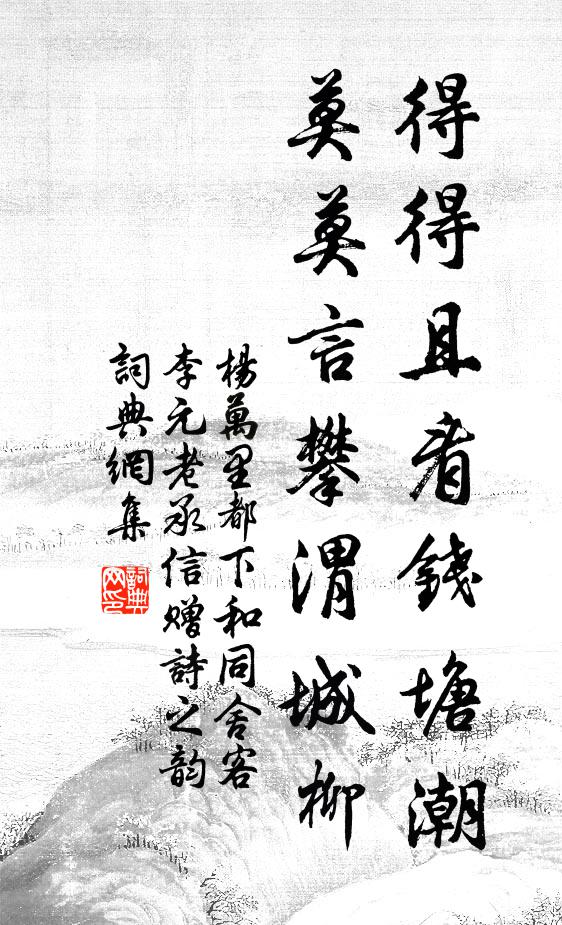 得得且看錢塘潮
莫莫言攀渭城柳
楊萬里都下和同舍客
李元老承信贈詩之韵
詞典網集
詞典
网印